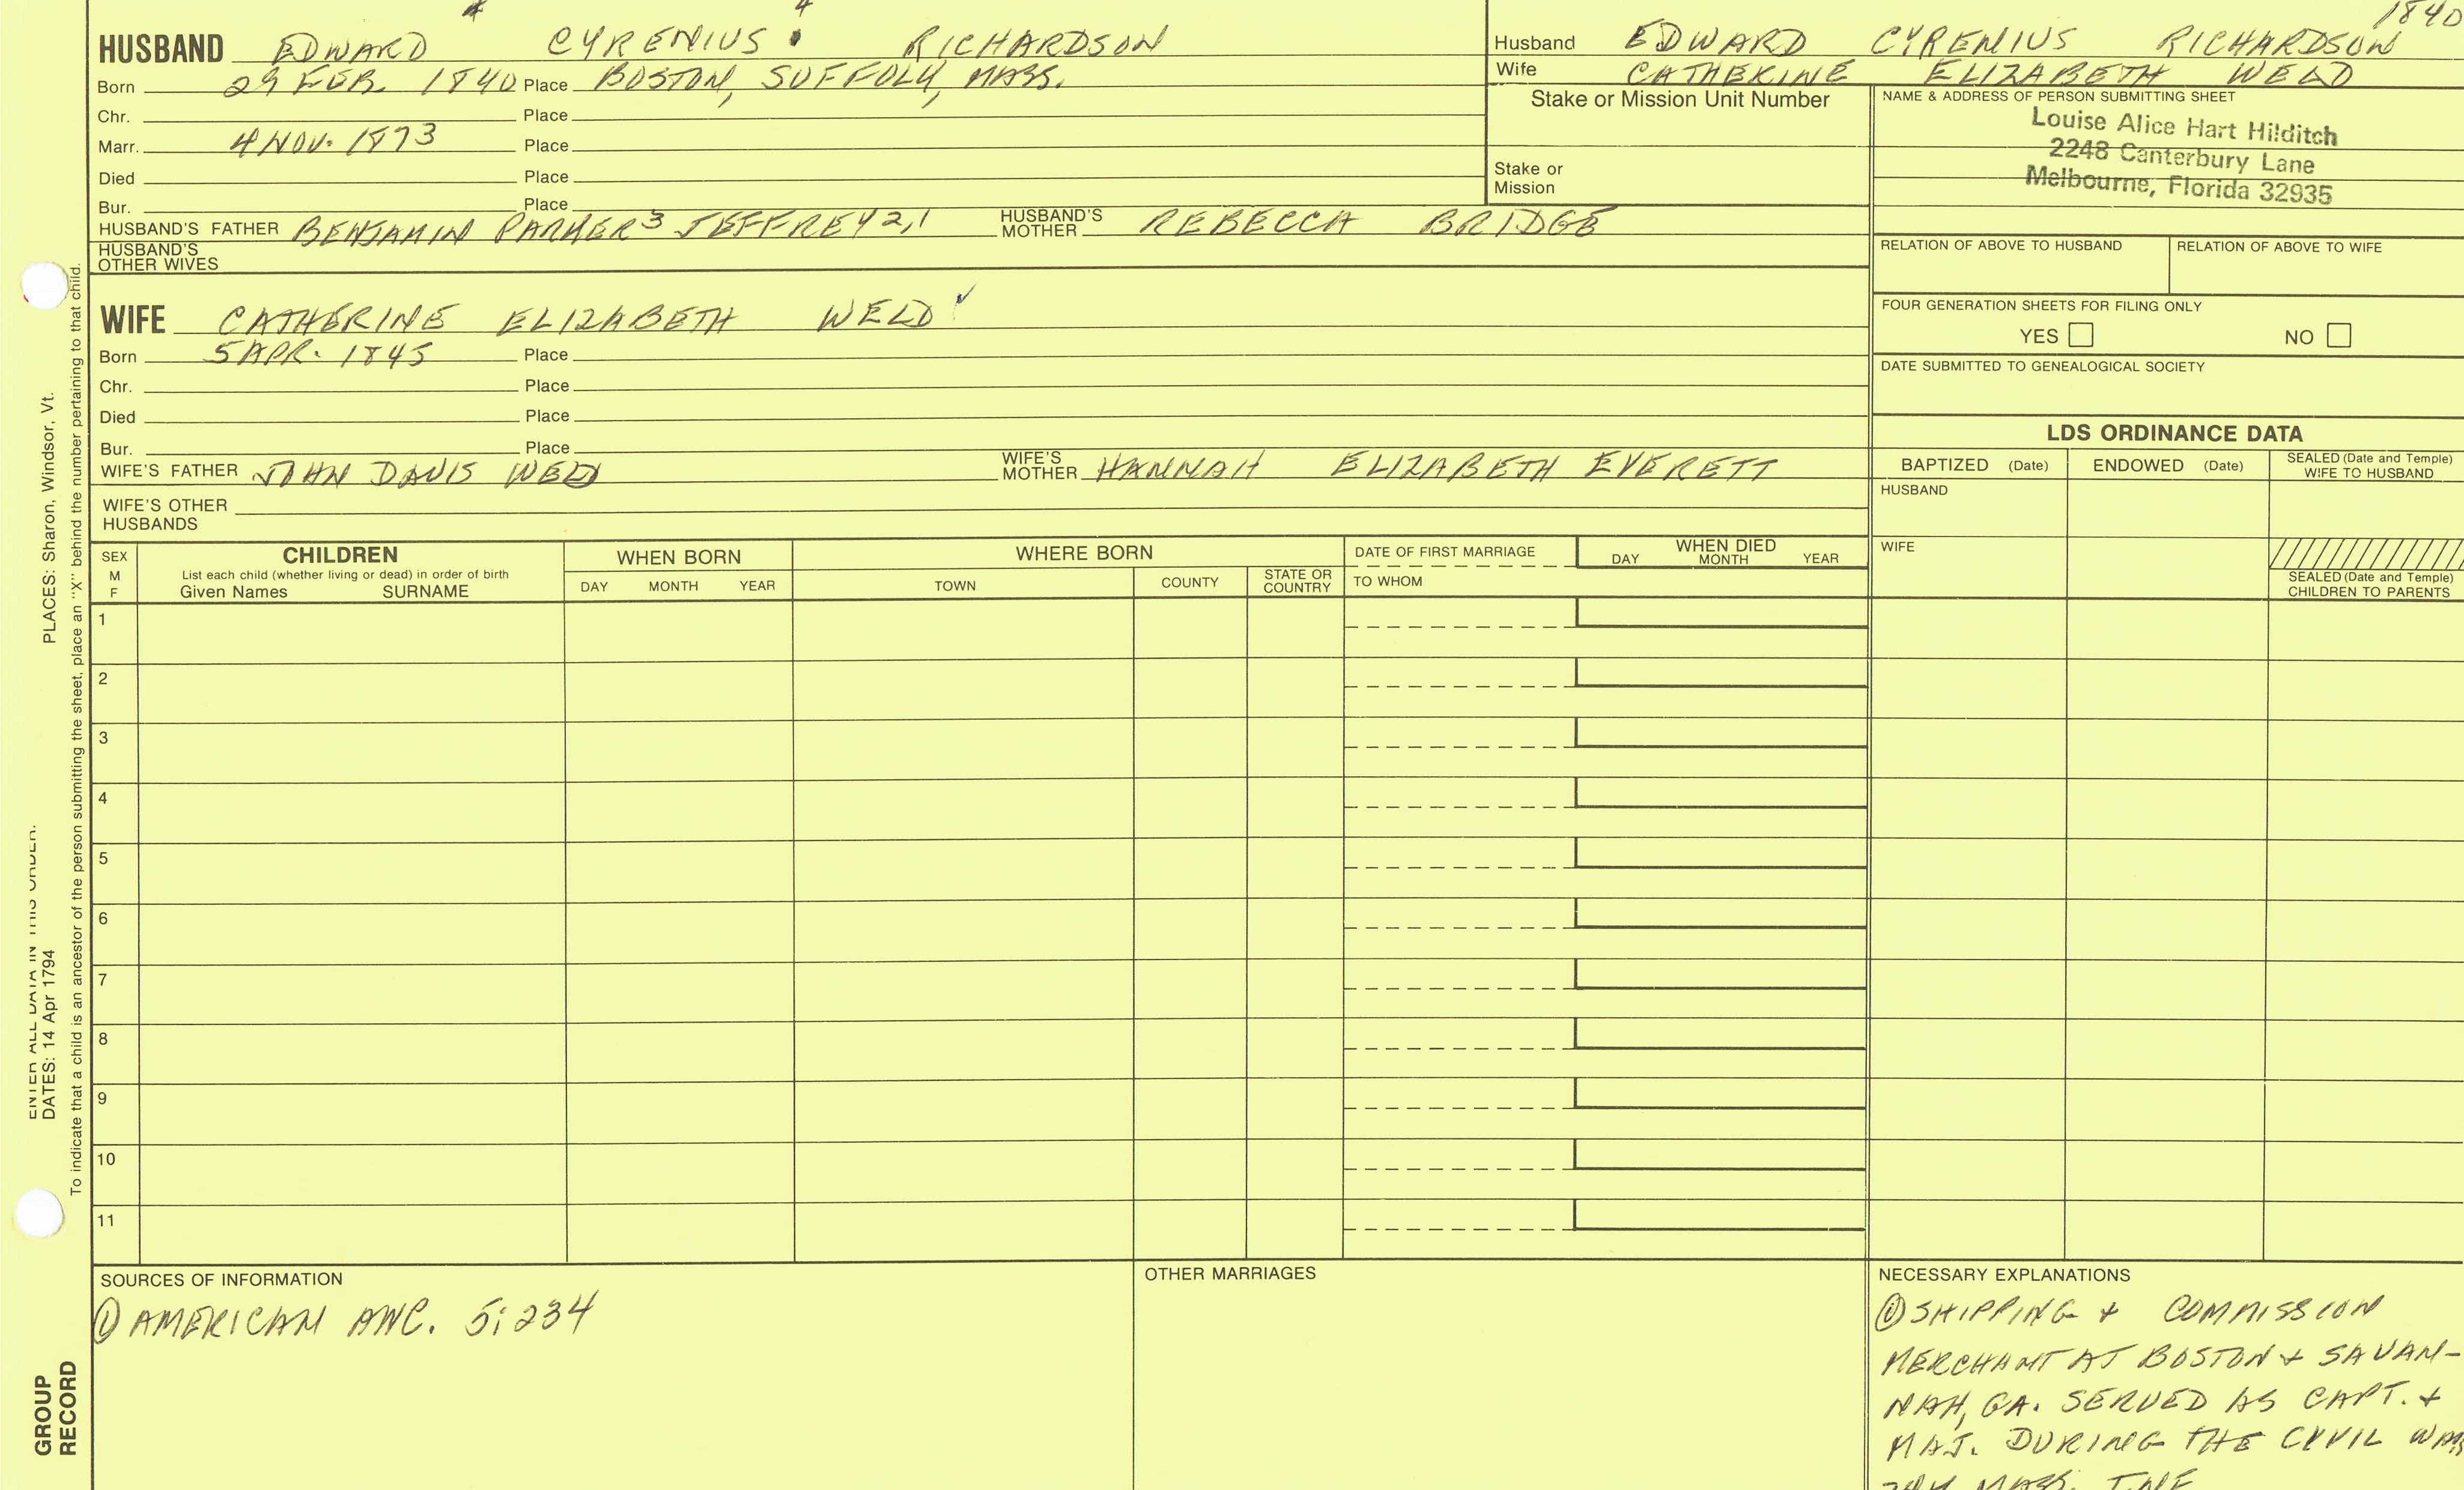 1840
HUSBAND EDWARD CYRENIUS 4 RICHARDSON
Born 29 FEB. 1840 Place BOSTON, SUFFOLK, MASS.
Chr. Place
Marr. 4 NOV. 1873 Place
Died Place
Bur. Place
HUSBAND'S FATHER BENJAMIN PARKER 3 JEFFREY 2,1 HUSBAND'S MOTHER REBECCA BRIDGE
HUSBAND'S
OTHER WIVES
WIFE CATHERINE ELIZABETH WELD
Born 5 APR. 1845 Place
Chr. Place
Died Place
Bur. Place
WIFE'S FATHER JOHN DAVIS WELD WIFE'S MOTHER HANNAH ELIZABETH EVERETT
WIFE'S OTHER
HUSBANDS
Husband EDWARD CYRENIUS RICHARDSON
Wife CATHERINE ELIZABETH WELD
Stake or Mission Unit Number
Stake or
Mission
NAME & ADDRESS OF PERSON SUBMITTING SHEET
Louise Alice Hart Hilditch
2248 Canterbury Lane
Melbourne, Florida 32935
RELATION OF ABOVE TO HUSBAND RELATION OF ABOVE TO WIFE
FOUR GENERATION SHEETS FOR FILING ONLY
YES NO
DATE SUBMITTED TO GENEALOGICAL SOCIETY
LDS ORDINANCE DATA
BAPTIZED (Date) ENDOWED (Date) SEALED (Date and Temple)
WIFE TO HUSBAND
HUSBAND
WIFE
SEALED (Date and Temple)
CHILDREN TO PARENTS
SEX
M
F
CHILDREN
List each child (whether living or dead) in order of birth
Given Names SURNAME
WHEN BORN
DAY MONTH YEAR
WHERE BORN
TOWN COUNTY STATE OR COUNTRY
DATE OF FIRST MARRIAGE
TO WHOM
WHEN DIED
DAY MONTH YEAR
1
2
3
4
5
6
7
8
9
10
11
SOURCES OF INFORMATION
① AMERICAN ANC. 5:234
OTHER MARRIAGES
NECESSARY EXPLANATIONS
① SHIPPING & COMMISSION
MERCHANT AT BOSTON & SAVAN-
NAH, GA. SERVED AS CAPT. &
MAJ. DURING THE CIVIL WAR
MASS. INF
ENTER ALL DATA IN THIS ORDER.
DATES: 14 Apr 1794 PLACES: Sharon, Windsor, Vt.
To indicate that a child is an ancestor of the person submitting the sheet, place an "X" behind the number pertaining to that child.
GROUP
RECORD